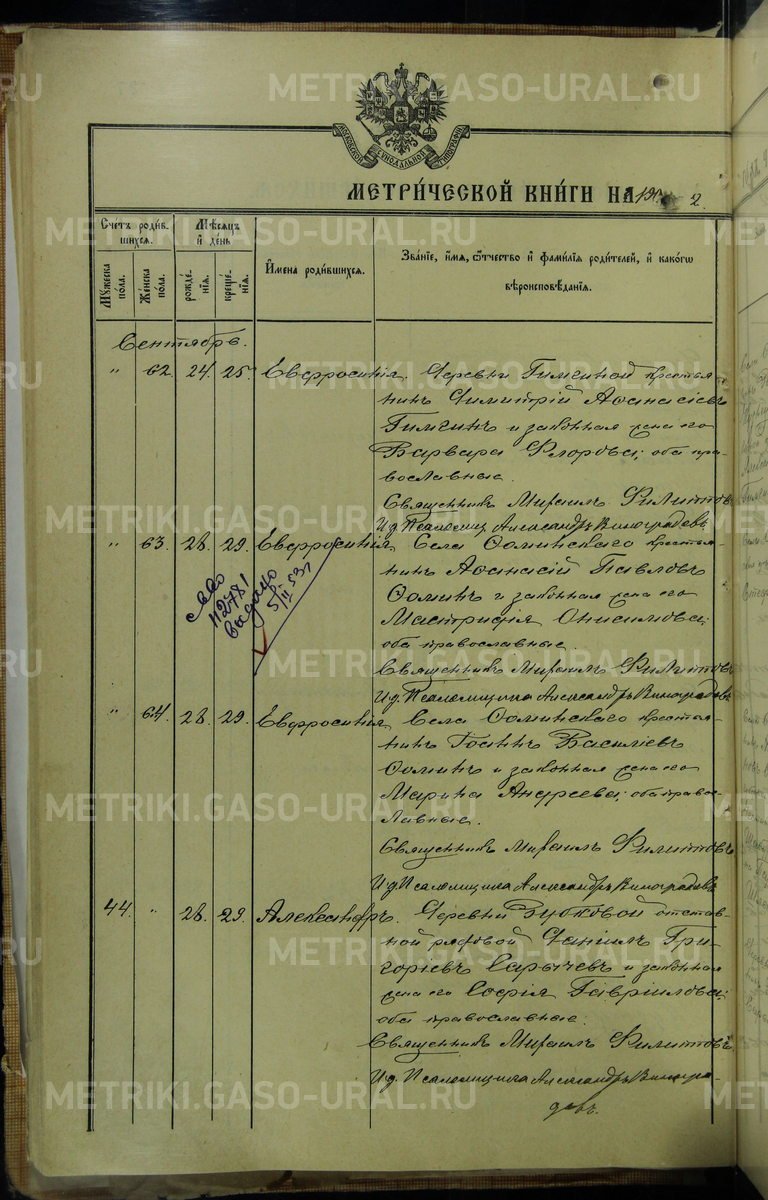 METRIKI.GASO-URAL.RU
МОСКОВСКОЙ СѴНОДАЛЬНОЙ ТИПОГРАФІИ
МЕТРИ́ЧЕСКОЙ КНИ́ГИ НА 190 2.
Счетъ роди́в-
шихся.
Мѣсяцъ
и҆ де́нь
Мꙋ́жеска по́ла.
Же́нска по́ла.
рожде́-
нія.
креще́-
нія.
И҆мена роди́вшихся.
Зва́ніе, и҆́мя, ѻ҆́тчество и҆ фами́лія роди́телей, и҆ како́гѡ
вѣроисповѣ́данія.
Сентябрь.
" 62. 24. 25. Евфросинія. Деревни Гилевой крестья-
нинъ Димитрій Аѳанасіевъ
и законная жена его
Варвара Флорова; оба пра-
вославные.
Священникъ Михаилъ Филипповъ
И.д. Псаломщ. Александръ Виноградовъ
" 63. 28. 29. Евфросинія. Села Ѳоминскаго крестья-
нинъ Аѳанасій Павловъ
Ѳоминъ и законная жена его
Мастридія Онисимова;
оба православные.
Священникъ Михаилъ Филипповъ
И.д. Псаломщика Александръ Виноградовъ
112781
выдано
5/II 53
" 64. 28. 29. Евфросинія. Села Ѳоминскаго крестья-
нинъ Іоаннъ Василіевъ
Ѳоминъ и законная жена его
Марина Андреева; оба право-
славные.
Священникъ Михаилъ Филипповъ
И.д. Псаломщика Александръ Виноградовъ
44. " 28. 29. Александръ. Деревни Зубковой отстав-
ной рядовой Даніилъ Гри-
горіевъ Сарычевъ и законная
жена его Софія Гавріилова;
оба православные.
Священникъ Михаилъ Филипповъ
И.д. Псаломщика Александръ Виногра-
довъ.